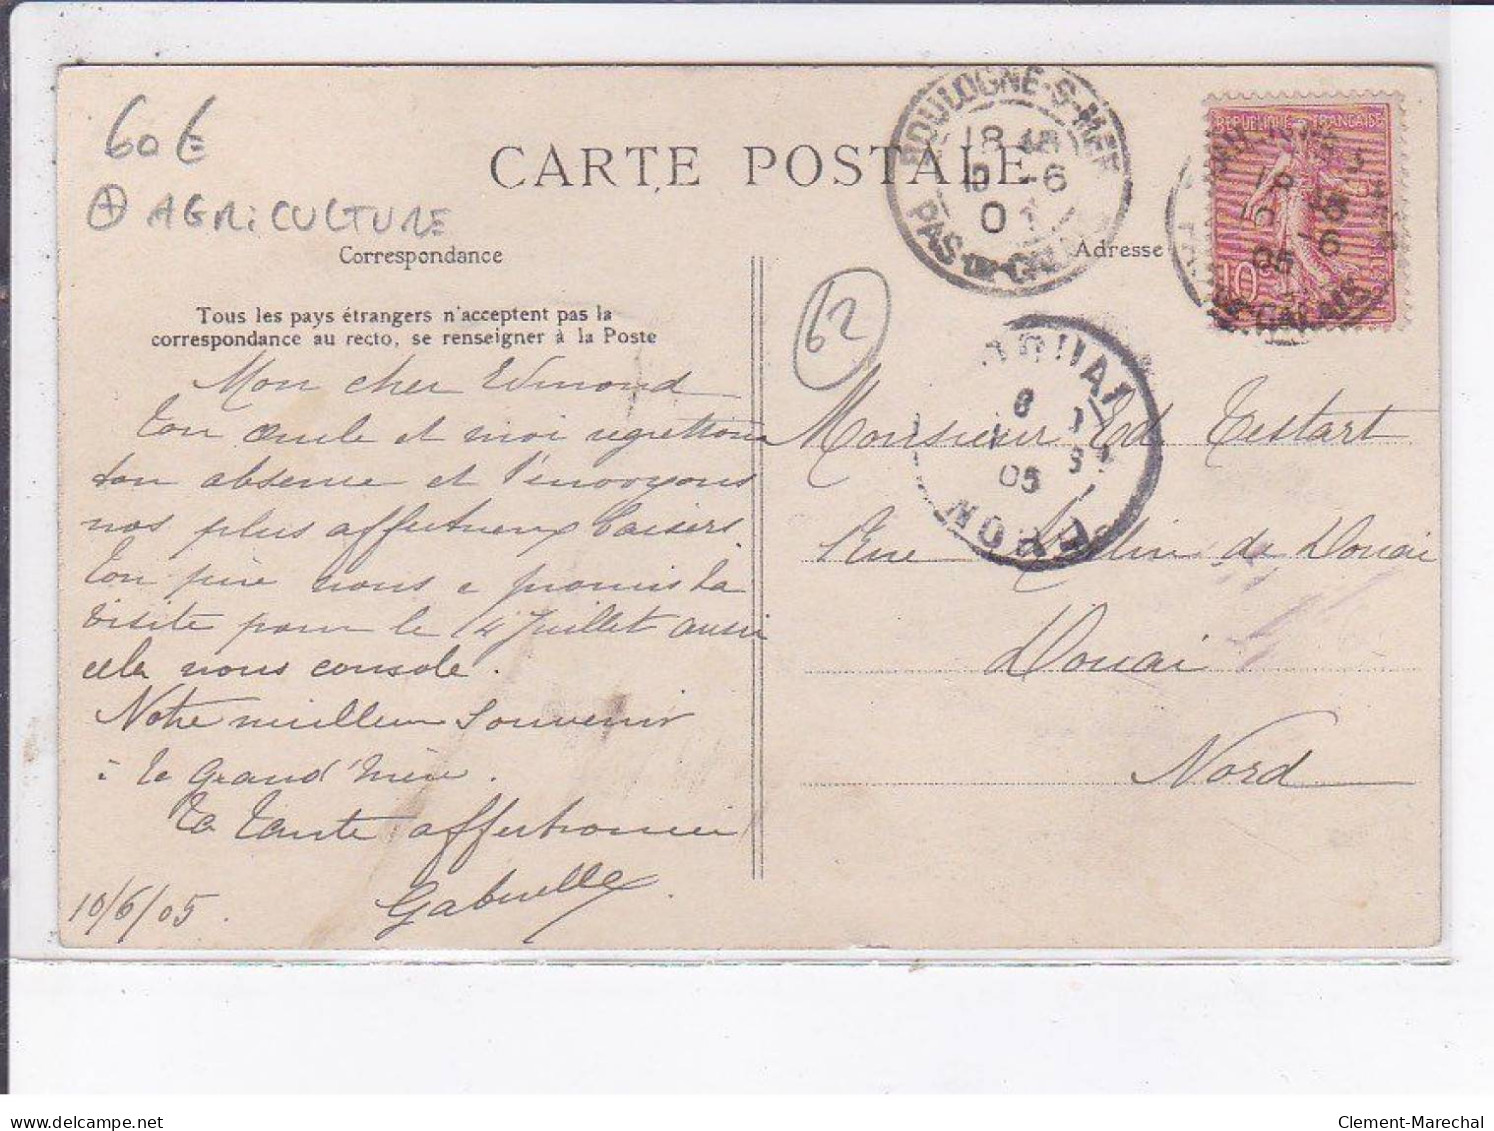 60 €
+ AGRICULTURE
CARTE POSTALE
BOULOGNE-S-MER
18 45
10 -6
0
PAS-DE-CALAIS
REPUBLIQUE FRANÇAISE
10c
18
10 6
05
Correspondance
Adresse
Tous les pays étrangers n'acceptent pas la
correspondance au recto, se renseigner à la Poste
62
DOUAI
05
NORD
Mon cher Edmond
Ton oncle et moi regrettons
ton absence et t'envoyons
nos plus affectueux baisers.
Ton père nous a promis la
visite pour le 14 Juillet aussi
cela nous console.
Notre meilleur souvenir
à la Grand'mère.
Ta Tante affectionnée
Gabrielle
10/6/05.
Monsieur Ed. Testart
Rue de Douai
Douai
Nord
Clement-Marechal